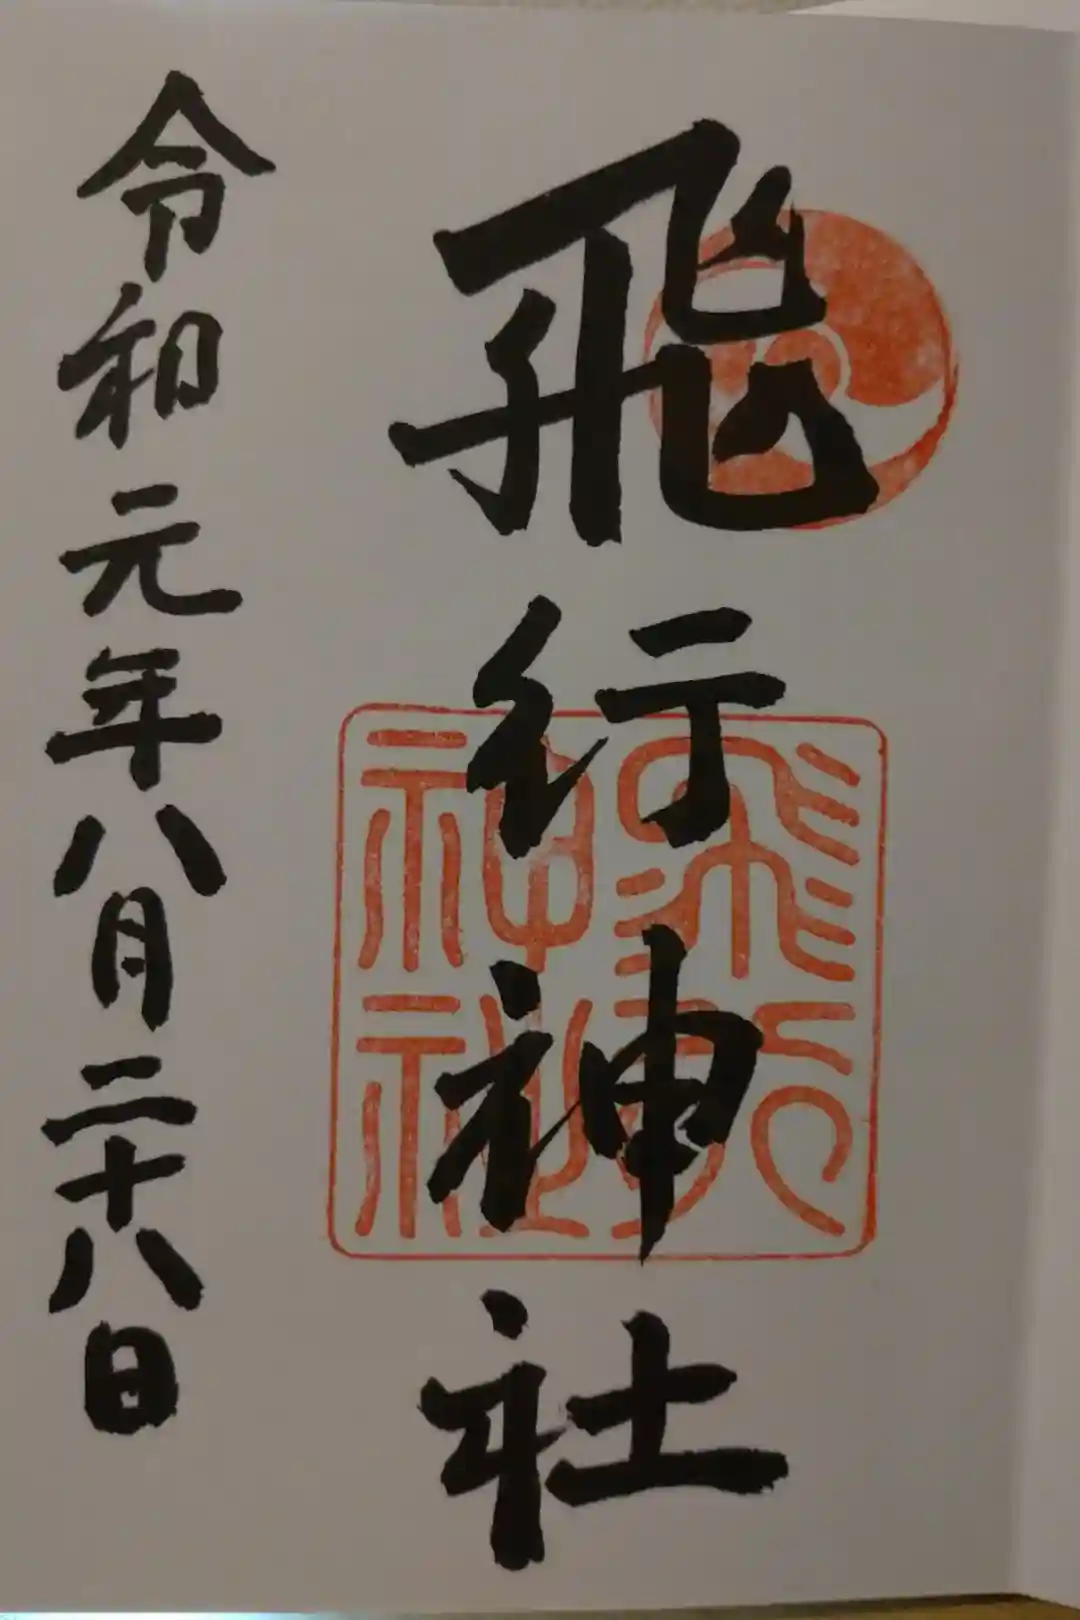 飛行神社
飛行神社
令和元年八月二十八日